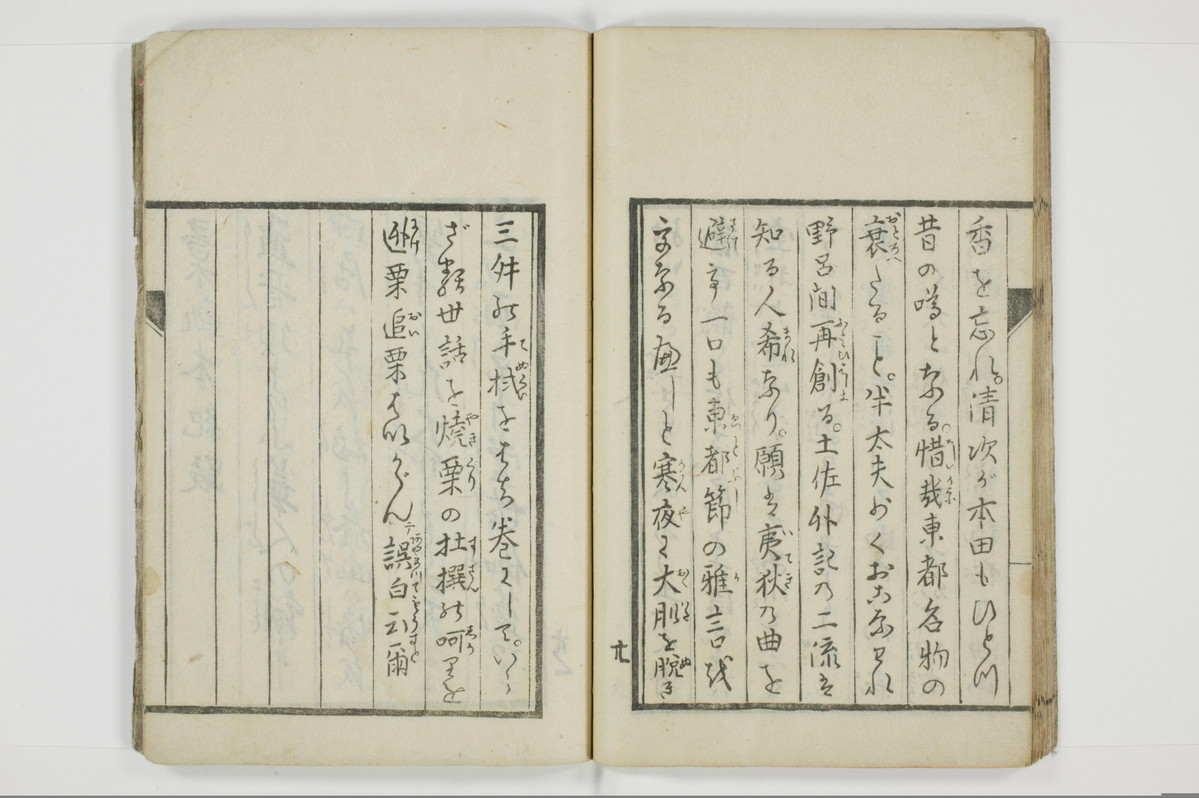 香を忘れ。清次が本田もひとつ
昔の噂となる。惜哉東都名物の
衰たること。半太夫おくおこなはれ
野呂間再創る。土佐外記の二流は
知る人希なり。願は夷狄の曲を
避て一口も東都節の雅言を
なる と寒夜に大服を脱ぎ
三舛の手拭をはち巻にして。
世話を焼栗の杜撰の呵りを
栗追栗はいがぐん誤白云爾